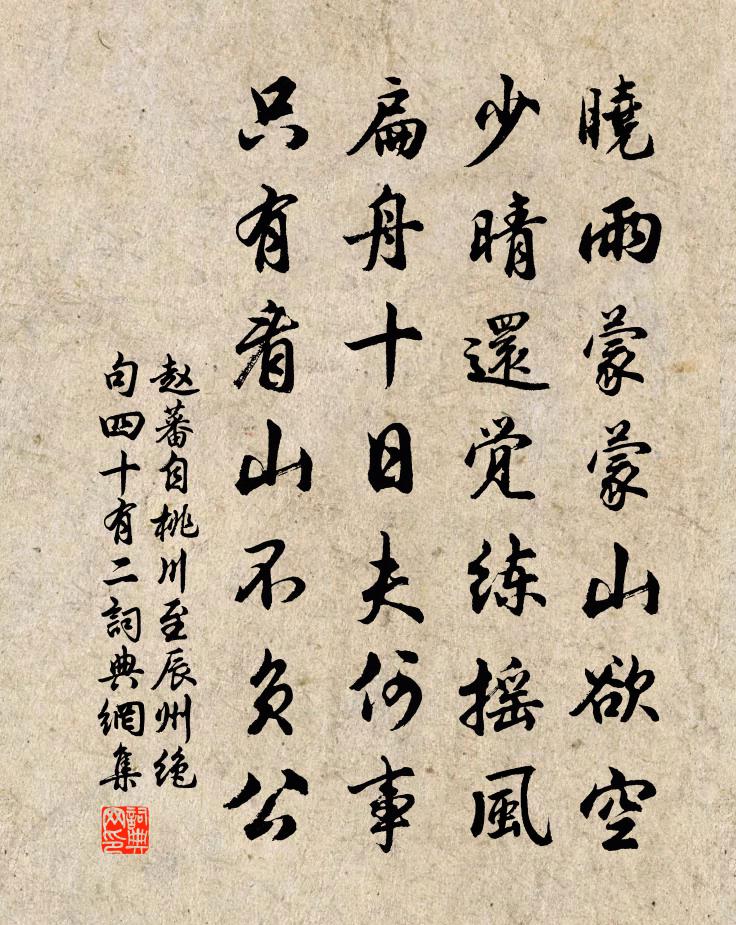 曉雨蒙蒙山欲空
少晴還觉练摇風
扁舟十日夫何事
只有看山不负公
赵蕃自桃川至辰州绝
句四十有二詞典網集
詞典
网印